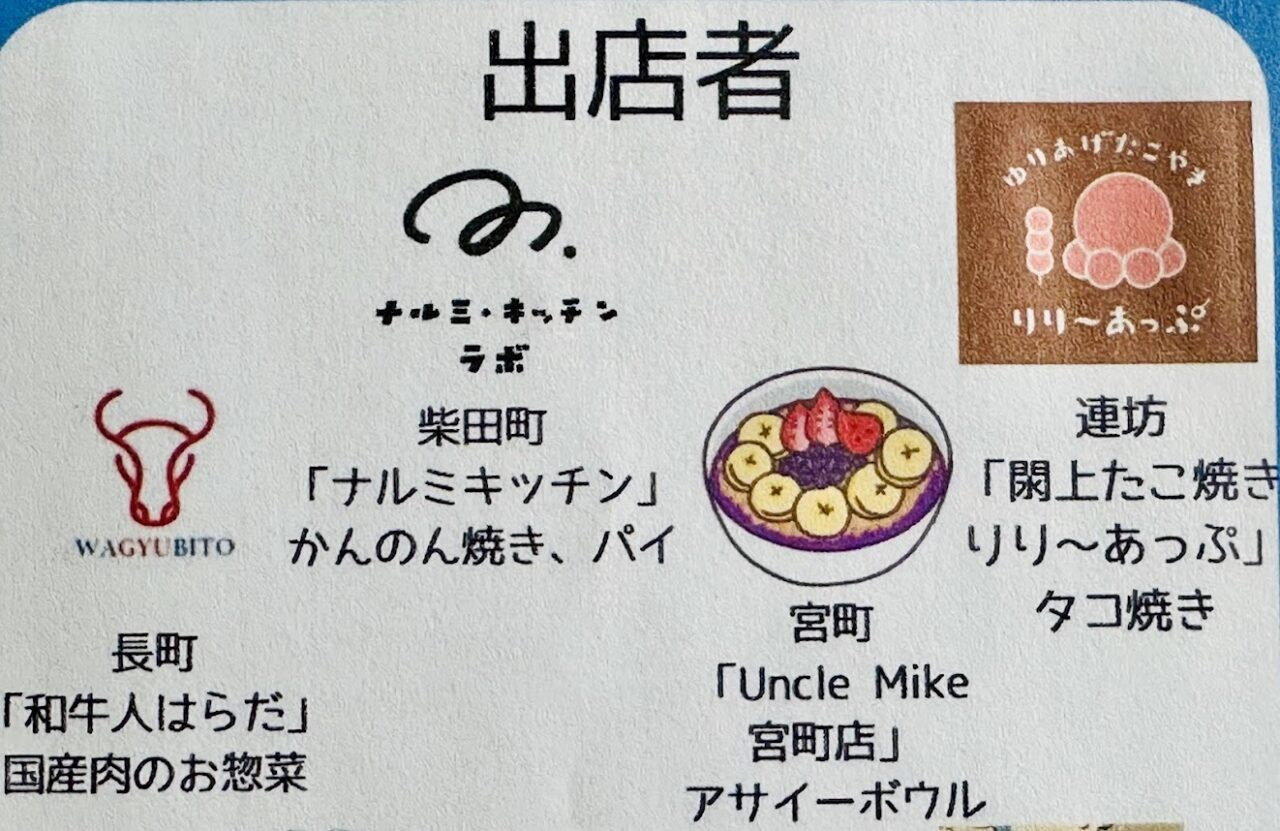 出店者
ナルミ・キッチン
ラボ
柴田町
「ナルミキッチン」
かんのん焼き、パイ
ゆりあげたこやき
りり〜あっぷ
連坊
「閖上たこ焼き
りり〜あっぷ」
タコ焼き
WAGYUBITO
長町
「和牛人はらだ」
国産肉のお惣菜
宮町
「Uncle Mike
宮町店」
アサイーボウル